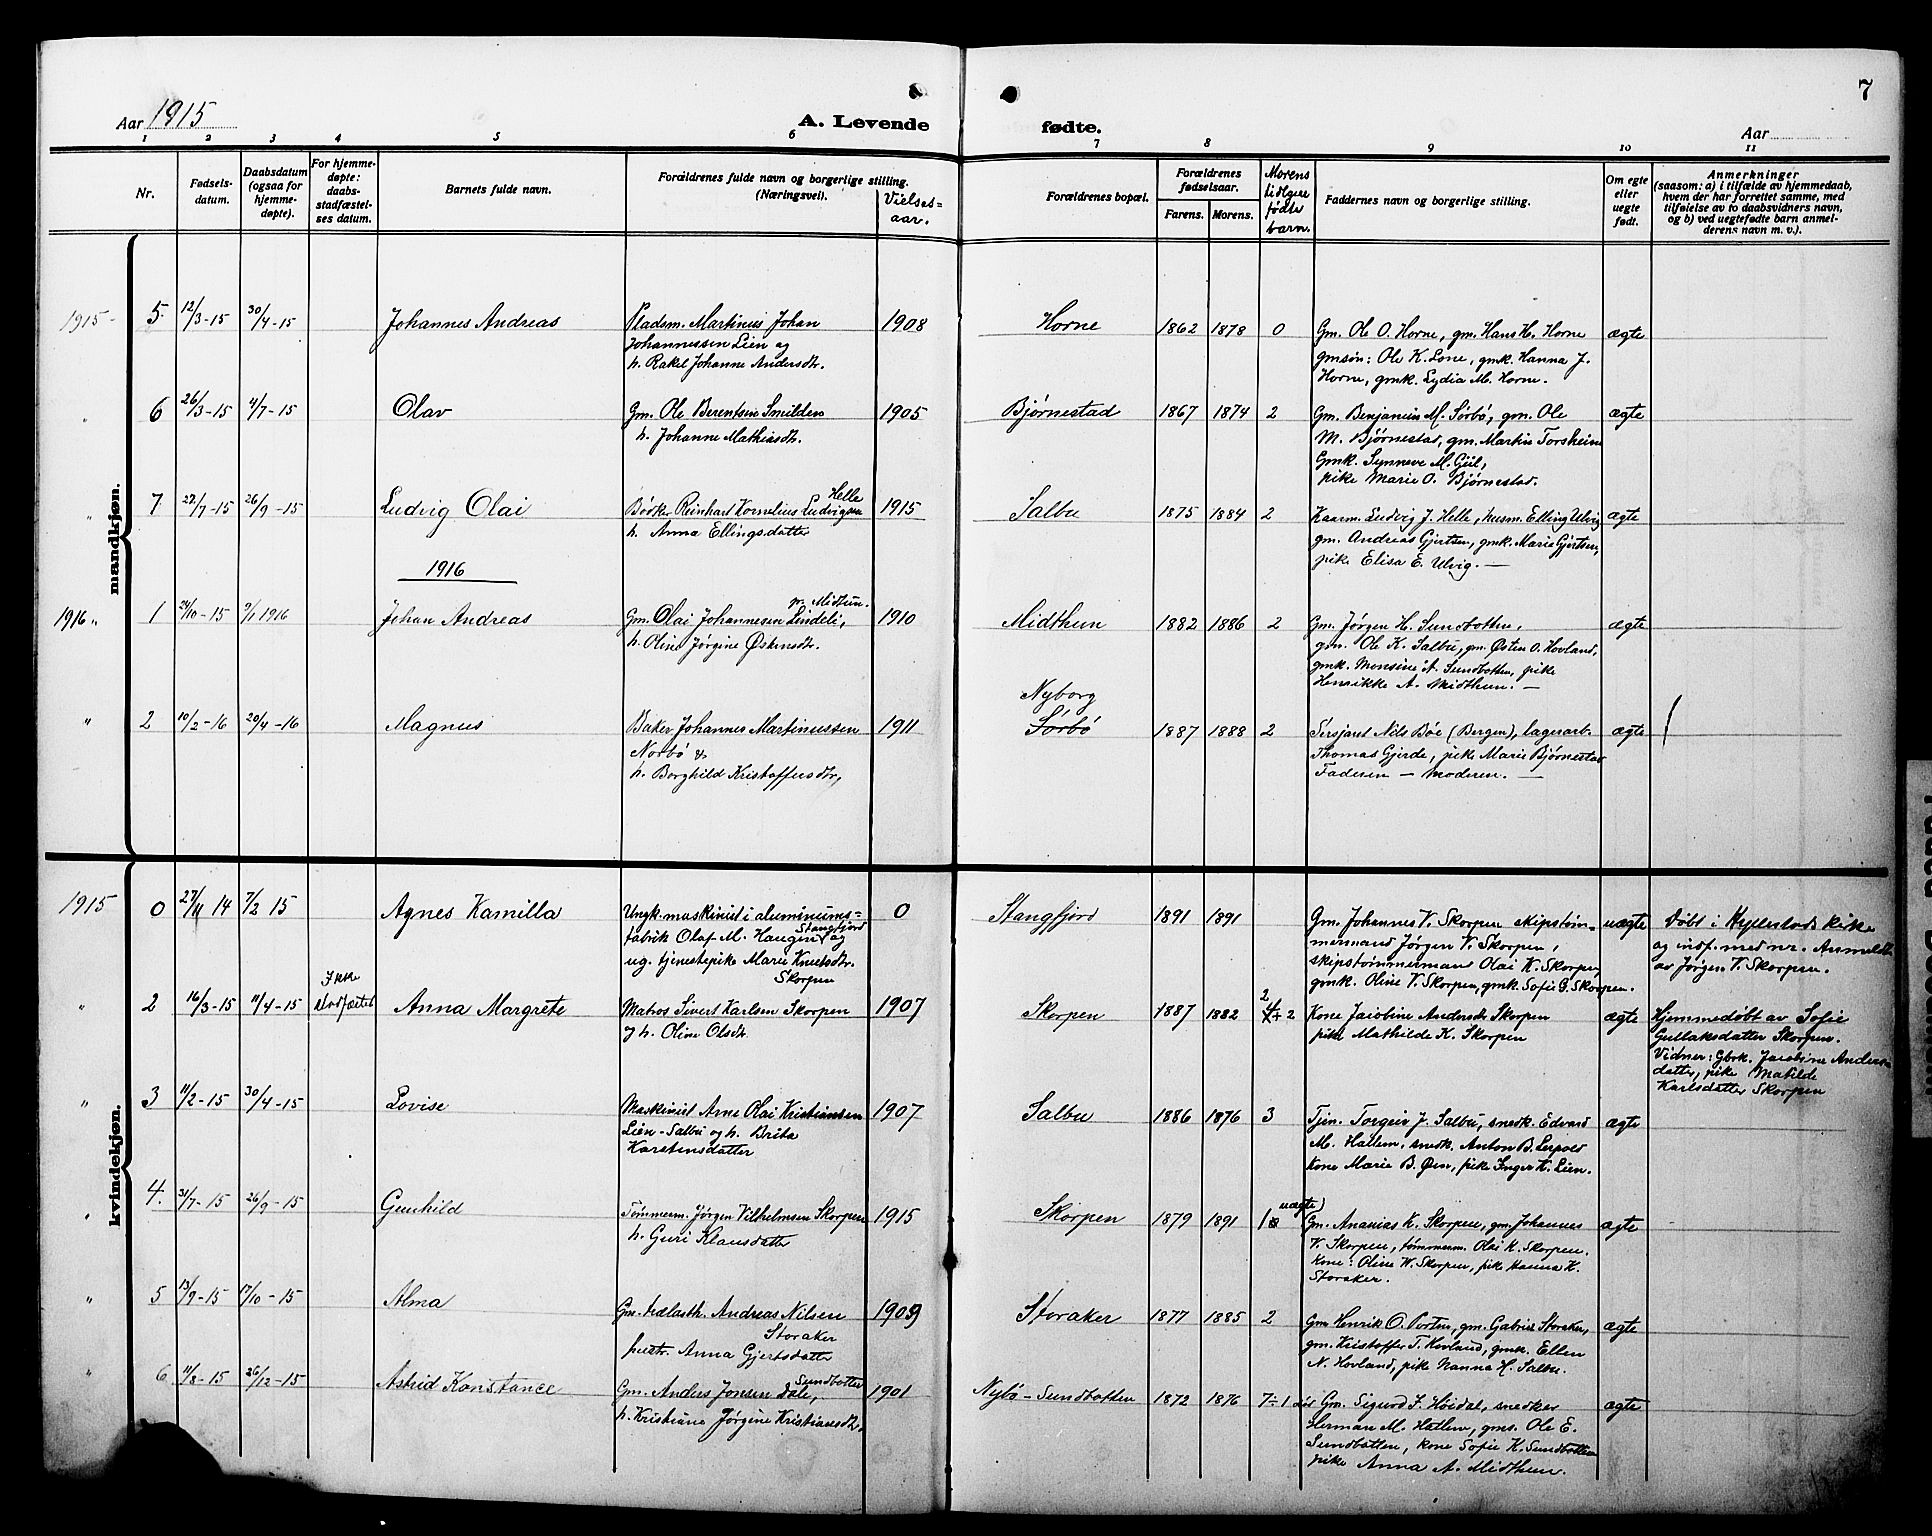 7
Aar 1915
A. Levende
fødte.
Aar
1 2 3 4 5 6 7 8 9 10 11
Nr.
Fødsels-
datum.
Daabsdatum
(ogsaa for
hjemme-
døpte).
For hjemme-
døpte:
daabs-
stadfæstel-
ses datum.
Barnets fulde navn.
Forældrenes fulde navn og borgerlige stilling.
(Næringsvei).
Vielses=
aar.
Forældrenes bopæl.
Forældrenes
fødselsaar.
Farens. Morens.
Morens
tidligere
fødte
barn.
Faddernes navn og borgerlige stilling.
Om egte
eller
uegte
født.
Anmerkninger
(saasom: a) i tilfælde av hjemmedaab,
hvem der har forrettet samme, med
tilføielse av to daabsvidners navn,
og b) ved uegtefødte barn anmel-
derens navn m. v.).
mandkjøn.
1915 5 12/3-15 30/4-15 Johannes Andreas
Pladsm. Martinus Johan
Johannessen Lien og
h. Rakel Johanne Andersdtr.
1908 Horne 1862 1878 0
Gm. Ole O. Horne, gm. Hans H. Horne
gmsøn: Ole K. Lone, gmk. Hanna J.
Horne, gmk. Lydia M. Horne.
ægte
" 6 26/3-15 4/7-15 Olav
Gm. Ole Berentsen Smilden
h. Johanne Mathiasdtr.
1905 Bjørnestad 1867 1874 2
Gm. Benjamin M. Sørbø, gm. Ole
M. Bjørnestad, gm. Martin Torsheim
Gmk. Synneve M. Gjil,
pike Marie O. Bjørnestad.
ægte
" 7 27/7-15 26/9-15 Ludvig Olai
Helle
Bødker Reinhart Kornelius Ludvigsen
h. Anna Ellingsdatter
1915 Salbu 1875 1884 2
Kaarm. Ludvig J. Helle, husm. Elling Ulvig
gm. Andreas Gjertsen, gmk. Marie Gjertsen,
pike Elisa E. Ulvig. —
ægte
1916
1916 " 1 24/10-15 9/1 1916 Johan Andreas
Midtun.
Gm. Olai Johannesen Lindeli,
h. Oline Jørgine Østensdtr.
1910 Midthun 1882 1886 2
Gm. Jørgen H. Sundbotten,
gm. Ole K. Salbu, gm. Østen O. Hovland,
gmk. Monsine A. Sundbotten, pike
Henrikke A. Midthun. —
ægte
" 2 10/2-16 20/4-16 Magnus
Baker Johannes Martinussen
Norbø &
h. Borghild Kristoffersdtr,
1911
Nyborg
Sørbø
1887 1888 2
Sersjant Nils Bøe (Bergen), lagerarb.
Thomas Gjerde, pike Marie Bjørnestad
Faderen — moderen. —
ægte
kvindekjøn.
1915 0 27/11 14 7/2 15 Agnes Kamilla
Ungk. maskinist i aluminiums=
fabrik Olaf M. Haugen Stangfjord og
ug. tjenestepike Marie Knutsdtr.
Skorpen
0 Stangfjord 1891 1891
Gm. Johannes V. Skorpen skipstøm-
mermand Jørgen V. Skorpen,
skipstømmermand Olai K. Skorpen,
gmk. Oline V. Skorpen, gmk. Sofie G. Skorpen.
uægte
Døbt i Hyllestads kirke
og indf. med nr. Anmeldt
av Jørgen V. Skorpen.
" 2 16/3-15 11/4-15
Ikke
stadfæstet
Anna Margrete
Matros Sivert Karlsen Skorpen
og h. Oline Olsdtr.
1907 Skorpen 1887 1882
Kone Jacobine Andersdtr Skorpen
pike Mathilde K. Skorpen
ægte
Hjemmedøbt av Sofie
Gullaksdatter Skorpen.
Vidner: Gbrk. Jacobine Anders-
datter, pike Matilde
Karlsdatter Skorpen
" 3 11/2-15 30/4-15 Lovise
Maskinist Arne Olai Kristiansen
Lien-Salbu og h. Brita
Karstensdatter
1907 Salbu 1886 1876 3
Tjen. Torgeir J. Salbu, snedk. Edvard
M. Hatlem, snedk. Anton B. Lepold
Kone Marie B. Øen, pike Inger K. Lien.
ægte
" 4. 31/7-15 26/9-15 Gunhild
Tømmerm. Jørgen Vilhelmsen Skorpen
h. Guri Klausdatter
1915 Skorpen 1879 1891 1 uægte
Gm. Ananias K. Skorpen, gm. Johannes
V. Skorpen, tømmerm. Olai K. Skorpen.
Kone: Oline W. Skorpen, pike Hanna K.
Storaker.
ægte
" 5 13/9-15 17/10-15 Alma
Gm. Andreas Nilsen
Storaker
hustr. Anna Gjertsdatter
1909 Storaker 1877 1885 2
Gm Henrik O. Porten, gm. Gabriel Storaker,
gm. Kristoffer T. Hovland, gmk. Ellen
N. Hovland, pike Nanna H. Salbu.
ægte
" 6 11/8-15 26/12-15 Astrid Konstance
Sundbotten
Gm. Anders Jonsen Dale,
h. Kristiane Jørgine Kristiansdtr.
1901 Nybø-Sundbotten 1872 1876 7÷1 død
Gm. Sigurd J. Høidal, snedker
Herman M. Hatlem, gms. Ole E.
Sundbotten, kone Sofie K. Sundbotten
pike Anna A. Midthun.
ægte